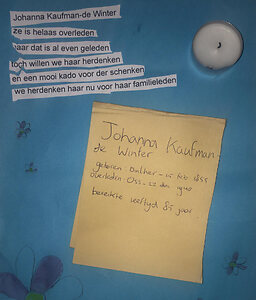 Johanna Kaufman-de Winter
ze is helaas overleden
maar dat is al even geleden
toch willen we haar herdenken
en een mooi kado voor der schenken
we herdenken haar nu voor haar familieleden
Johanna Kaufman-
de Winter
geboren - feb 1855
overleden Oss -
bereikte leeftijd 85 jaar.